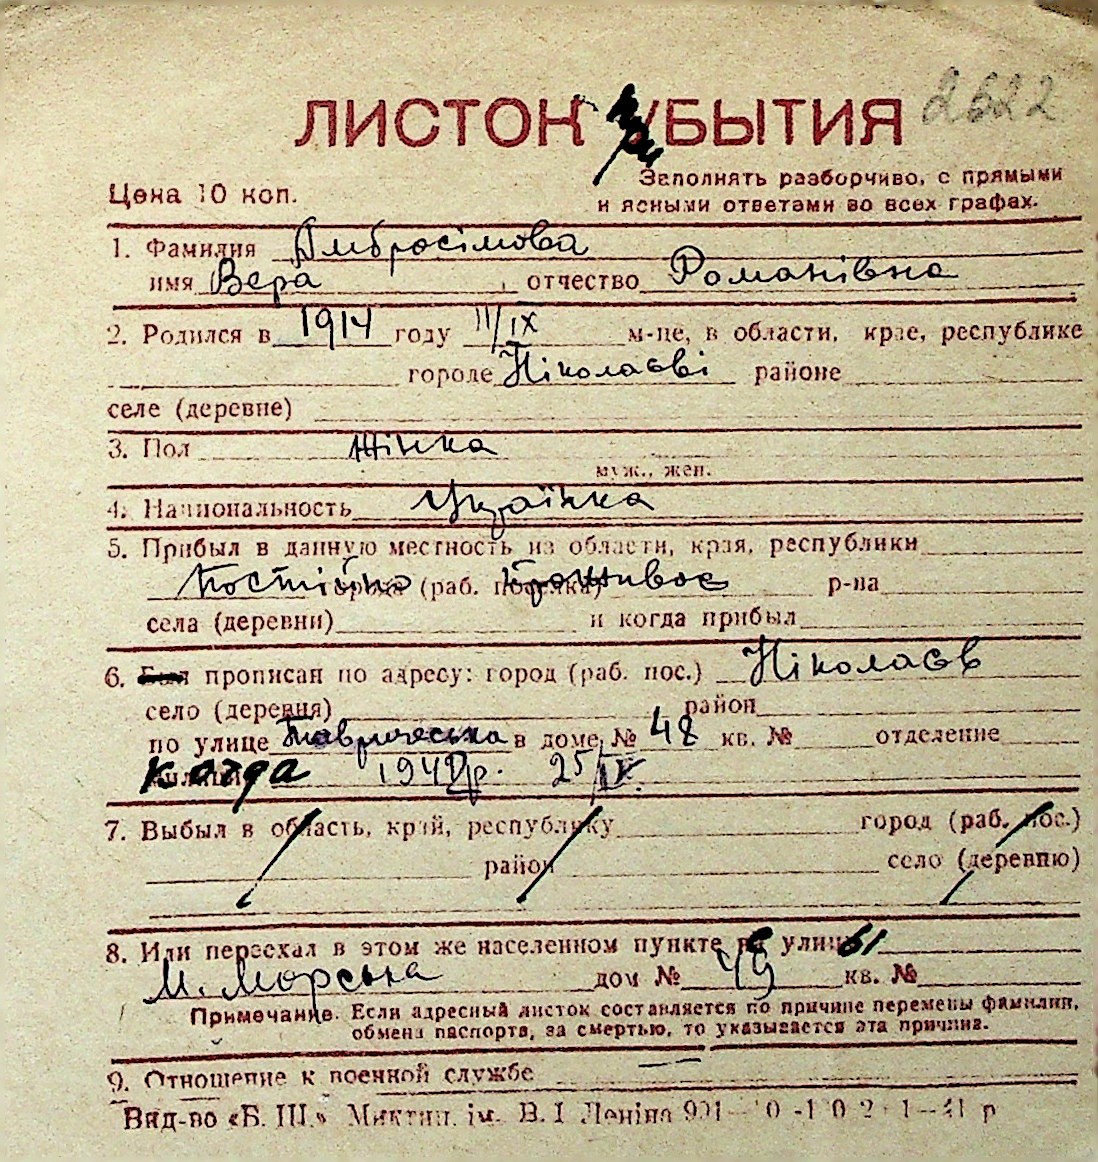 2622
ЛИСТОК приБЫТИЯ
Цена 10 коп.
Заполнять разборчиво, с прямыми
и ясными ответами во всех графах.
1. Фамилия Амбросімова
имя Вера отчество Романівна
2. Родился в 1914 году 11/IX м-це, в области, крае, республике
городе Ніколаєві районе
селе (деревне)
3. Пол жінка
муж., жен.
4. Национальность Українка
5. Прибыл в данную местность из области, края, республики
Постійно города (раб. поселка) проживає р-на
села (деревни) и когда прибыл
6. Был прописан по адресу: город (раб. пос.) Ніколаєв
село (деревня) район
по улице Таврическа в доме № 48 кв. № отделение
милиции когда 1942 р. 25/IV.
7. Выбыл в область, край, республику город (раб. пос.)
район село (деревню)
8. Или переехал в этом же населенном пункте с улицы
М. Морська дом № кв. №
Примечание. Если адресный листок составляется по причине перемены фамилии,
обмена паспорта, за смертью, то указывается эта причина.
9. Отношение к военной службе —
Вид-во «Б. Ш.» Миктип. ім. В. І Леніна